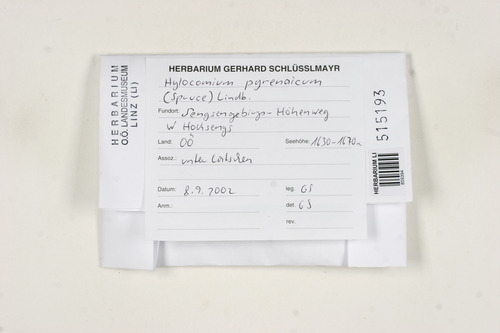 HERBARIUM
O.Ö. LANDESMUSEUM
LINZ (LI)
HERBARIUM GERHARD SCHLÜSSLMAYR
Hylocomium pyrenaicum
(Spruce) Lindb.
Fundort: Sengsengebirge-Höhenweg
W Hochsengs
Land: OÖ Seehöhe: 1630-1670m
Assoz.: unter Latschen
Datum: 8.9.2002 leg. GS
Anm.: det. GS
rev.
515193
HERBARIUM LI